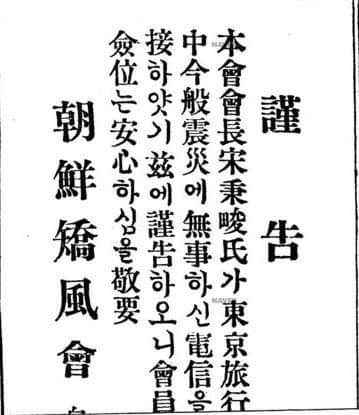 謹告
本會會長宋秉畯氏가東京旅行
中今般震災에無事하신電信을
接하얏기玆에謹告하오니會員
僉位는安心하심을敬要
朝鮮矯風會